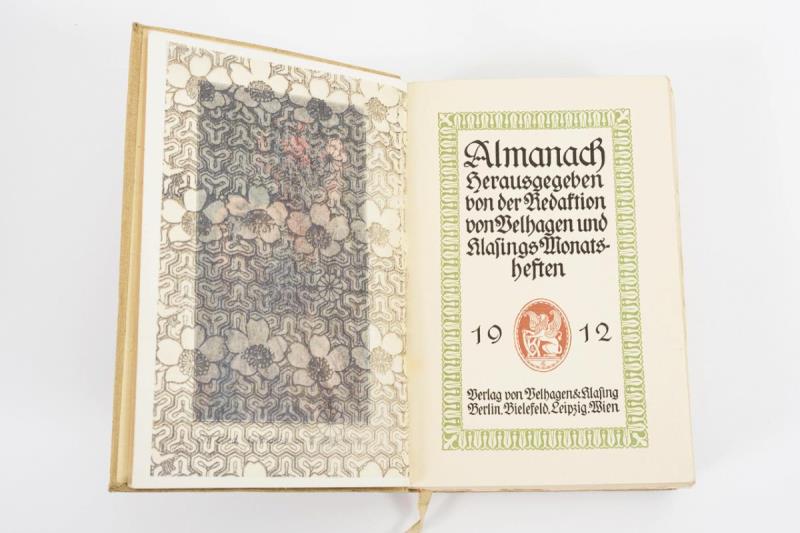 Almanach
Herausgegeben
von der Redaktion
von Velhagen und
Klasings Monats-
heften
1912
Verlag von Velhagen & Klasing
Berlin. Bielefeld. Leipzig. Wien